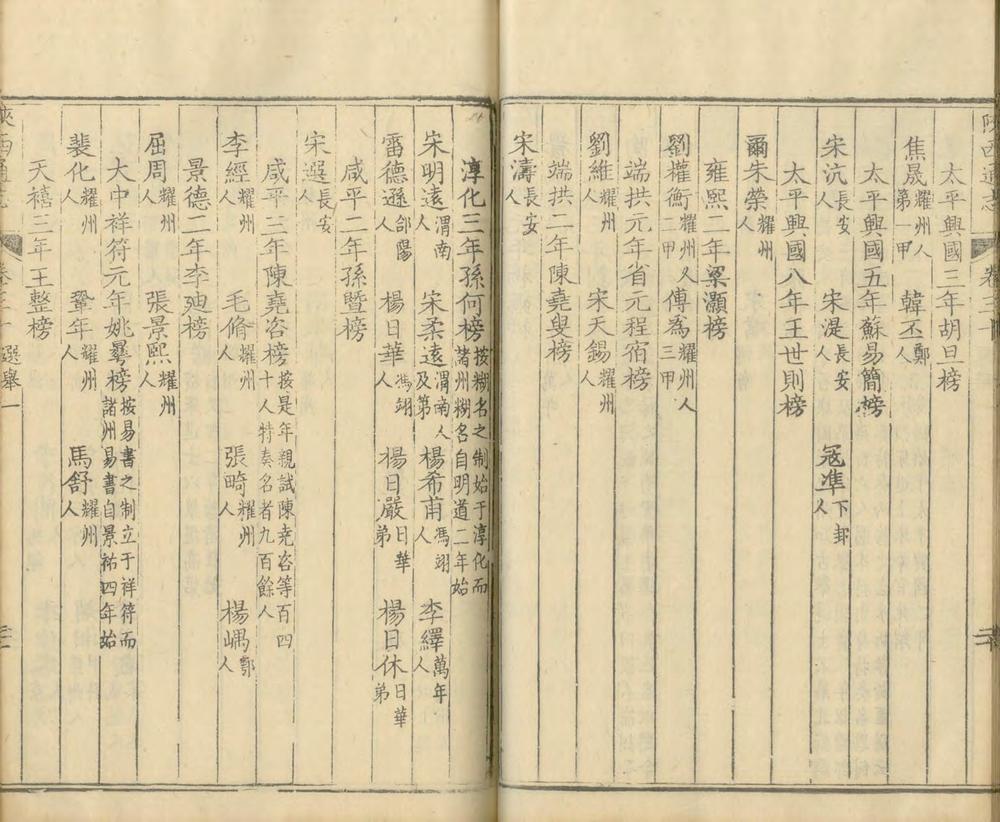 陜西通志 卷三
太平興國三年胡旦榜
焦晟耀州人第一甲 韓丕鄭人
太平興國五年蘇易簡榜
宋沆長安人 宋湜長安人 寇準下邽人
太平興國八年王世則榜
爾朱榮耀州
雍熙二年梁灝榜
劉權衡耀州人二甲 傅為耀州人三甲
端拱元年省元程宿榜
劉維耀州人 宋天錫耀州
端拱二年陳堯叟榜
宋濤長安人
淳化三年孫何榜按糊名之制始于淳化而諸州糊名自明道二年始
宋明遠渭南人 宋柔遠渭南人及第 楊希甫馮翊人 李繹萬年人
雷德遜郃陽人 楊日華馮翊人 楊日嚴日華弟 楊日休日華弟
咸平二年孫暨榜
宋選長安人
咸平三年陳堯咨榜按是年親試陳尭咨等百四十人特奏名者九百餘人
李經耀州人 毛脩耀州人 張畸耀州人 楊嵎鄠人
景德二年李廸榜
屈周耀州人 張景熙耀州人
大中祥符元年姚曅榜按易書之制立于祥符而諸州易書自景祐四年始
裴化耀州人 鞏年耀州人 馬舒耀州人
天禧三年王整榜
陜西通志 卷三十 選舉一